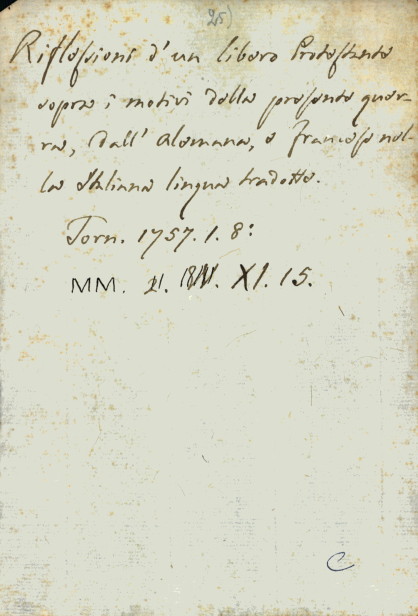 25)
Riflessioni d'un libero Protestante
sopra i motivi della presente guer-
ra, dall' Alemana, e francese nel-
la Italiana lingua tradotte.
Torn. 1757. 1. 8:
MM. XI. 15.
C